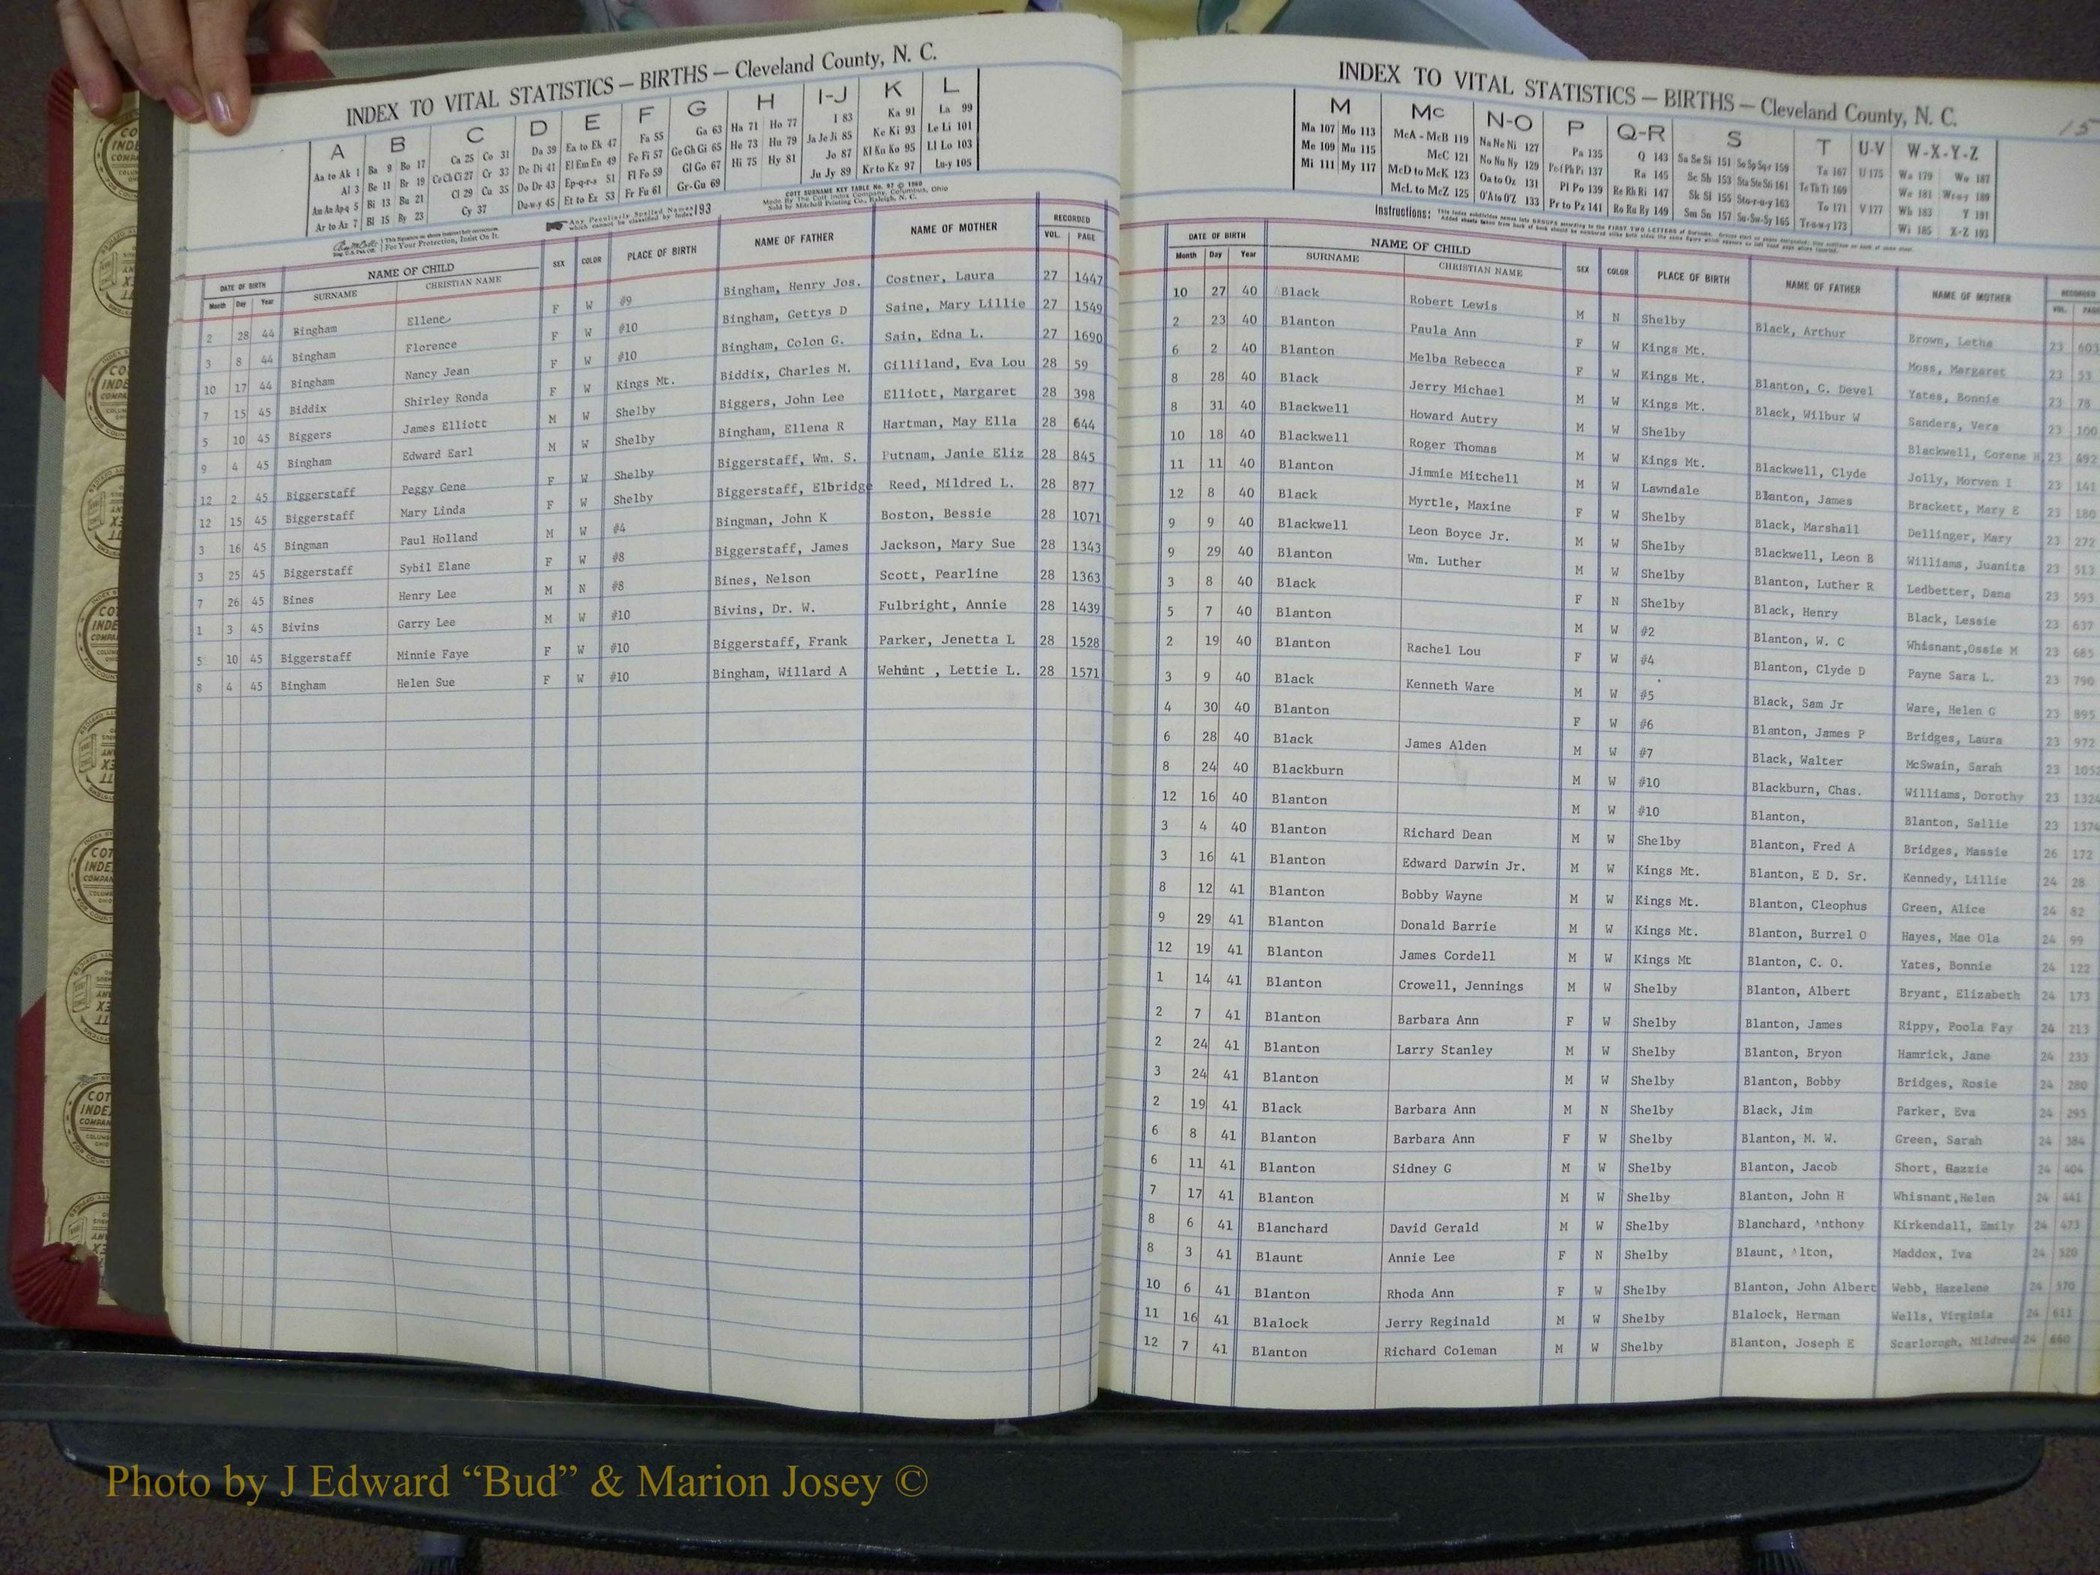 INDEX TO VITAL STATISTICS — BIRTHS — Cleveland County, N. C.
A B C D E F G H I-J K L
Aa to Ak 1 Ba 9 Bo 17 Ca 25 Co 31 Da 39 Ea to Ek 47 Fa 55 Ga 63 Ha 71 Ho 77 I 83 Ka 91 La 99
Al 3 Be 11 Br 19 Ce Ch Ci 27 Cr 33 De Di 41 El Em En 49 Fe Fi 57 Ge Gh Gi 65 He 73 Hu 79 Ja Je Ji 85 Ke Ki 93 Le Li 101
Am An Ap-q 5 Bi 13 Bu 21 Cl 29 Cu 35 Do Dr 43 Ep-q-r-s 51 Fl Fo 59 Gl Go 67 Hi 75 Hy 81 Jo 87 Kl Kn Ko 95 Ll Lo 103
Ar to Az 7 Bl 15 By 23 Cy 37 Du-w-y 45 Et to Ez 53 Fr Fu 61 Gr-Gu 69 Ju Jy 89 Kr to Kz 97 Lu-y 105
For Your Protection, Insist On It.
Any Peculiarly Spelled Names which cannot be classified by Index 193
COTT SURNAME KEY TABLE No. 97 © 1960
Made By The Cott Index Company, Columbus, Ohio
Sold by Mitchell Printing Co., Raleigh, N. C.
DATE OF BIRTH NAME OF CHILD SEX COLOR PLACE OF BIRTH NAME OF FATHER NAME OF MOTHER RECORDED
Month Day Year SURNAME CHRISTIAN NAME VOL. PAGE
2 28 44 Bingham Ellene F W #9 Bingham, Henry Jos. Costner, Laura 27 1447
3 8 44 Bingham Florence F W #10 Bingham, Gettys D Saine, Mary Lillie 27 1549
10 17 44 Bingham Nancy Jean F W #10 Bingham, Colon G. Sain, Edna L. 27 1690
7 15 45 Biddix Shirley Ronda F W Kings Mt. Biddix, Charles M. Gilliland, Eva Lou 28 59
5 10 45 Biggers James Elliott M W Shelby Biggers, John Lee Elliott, Margaret 28 398
9 4 45 Bingham Edward Earl M W Shelby Bingham, Ellena R Hartman, May Ella 28 644
12 2 45 Biggerstaff Peggy Gene F W Shelby Biggerstaff, Wm. S. Putnam, Janie Eliz 28 845
12 15 45 Biggerstaff Mary Linda F W Shelby Biggerstaff, Elbridge Reed, Mildred L. 28 877
3 16 45 Bingman Paul Holland M W #4 Bingman, John K Boston, Bessie 28 1071
3 25 45 Biggerstaff Sybil Elane F W #8 Biggerstaff, James Jackson, Mary Sue 28 1343
7 26 45 Bines Henry Lee M N #8 Bines, Nelson Scott, Pearline 28 1363
1 3 45 Bivins Garry Lee M W #10 Bivins, Dr. W. Fulbright, Annie 28 1439
5 10 45 Biggerstaff Minnie Faye F W #10 Biggerstaff, Frank Parker, Jenetta L 28 1528
8 4 45 Bingham Helen Sue F W #10 Bingham, Willard A Wehunt , Lettie L. 28 1571
INDEX TO VITAL STATISTICS — BIRTHS — Cleveland County, N. C.
15
M Mc N-O P Q-R S T U-V W-X-Y-Z
Ma 107 Mo 113 McA - McB 119 Na Ne Ni 127 Pa 135 Q 143 Sa Se Si 151 So Sp Sq-r 159 Ta 167 U 175 Wa 179 Wo 187
Me 109 Mu 115 McC 121 No Nu Ny 129 Pe f Ph Pi 137 Ra 145 Sc Sh 153 Sta Ste Sti 161 Te Th Ti 169 V 177 We 181 Wr-u-y 189
Mi 111 My 117 McD to McK 123 Oa to Oz 131 Pl Po 139 Re Rh Ri 147 Sk Sl 155 Sto-r-u-y 163 To 171 Wh 183 Y 191
McL to McZ 125 O'A to O'Z 133 Pr to Pz 141 Ro Ru Ry 149 Sm Sn 157 Su-Sw-Sy 165 Tr-u-w-y 173 Wi 185 X-Z 193
Instructions:
DATE OF BIRTH NAME OF CHILD SEX COLOR PLACE OF BIRTH NAME OF FATHER NAME OF MOTHER RECORDED
Month Day Year SURNAME CHRISTIAN NAME VOL. PAGE
10 27 40 Black Robert Lewis M N Shelby Black, Arthur Brown, Letha 23 603
2 23 40 Blanton Paula Ann F W Kings Mt. Moss, Margaret 23 53
6 2 40 Blanton Melba Rebecca F W Kings Mt. Blanton, C. Devel Yates, Bonnie 23 78
8 28 40 Black Jerry Michael M W Kings Mt. Black, Wilbur W Sanders, Vera 23 100
8 31 40 Blackwell Howard Autry M W Shelby Blackwell, Corene H 23 492
10 18 40 Blackwell Roger Thomas M W Kings Mt. Blackwell, Clyde Jolly, Morven I 23 141
11 11 40 Blanton Jimmie Mitchell M W Lawndale Blanton, James Brackett, Mary E 23 180
12 8 40 Black Myrtle, Maxine F W Shelby Black, Marshall Dellinger, Mary 23 272
9 9 40 Blackwell Leon Boyce Jr. M W Shelby Blackwell, Leon B Williams, Juanita 23 513
9 29 40 Blanton Wm. Luther M W Shelby Blanton, Luther R Ledbetter, Dana 23 593
3 8 40 Black F N Shelby Black, Henry Black, Lessie 23 637
5 7 40 Blanton M W #2 Blanton, W. C Whisnant,Ossie M 23 685
2 19 40 Blanton Rachel Lou F W #4 Blanton, Clyde D Payne Sara L. 23 790
3 9 40 Black Kenneth Ware M W #5 Black, Sam Jr Ware, Helen G 23 895
4 30 40 Blanton F W #6 Blanton, James P Bridges, Laura 23 972
6 28 40 Black James Alden M W #7 Black, Walter McSwain, Sarah 23 1052
8 24 40 Blackburn M W #10 Blackburn, Chas. Williams, Dorothy 23 1324
12 16 40 Blanton M W #10 Blanton, Blanton, Sallie 23 1374
3 4 40 Blanton Richard Dean M W Shelby Blanton, Fred A Bridges, Massie 26 172
3 16 41 Blanton Edward Darwin Jr. M W Kings Mt. Blanton, E D. Sr. Kennedy, Lillie 24 28
8 12 41 Blanton Bobby Wayne M W Kings Mt. Blanton, Cleophus Green, Alice 24 82
9 29 41 Blanton Donald Barrie M W Kings Mt. Blanton, Burrel O Hayes, Mae Ola 24 99
12 19 41 Blanton James Cordell M W Kings Mt Blanton, C. O. Yates, Bonnie 24 122
1 14 41 Blanton Crowell, Jennings M W Shelby Blanton, Albert Bryant, Elizabeth 24 173
2 7 41 Blanton Barbara Ann F W Shelby Blanton, James Rippy, Poola Fay 24 213
2 24 41 Blanton Larry Stanley M W Shelby Blanton, Bryon Hamrick, Jane 24 233
3 24 41 Blanton M W Shelby Blanton, Bobby Bridges, Rosie 24 280
2 19 41 Black Barbara Ann M N Shelby Black, Jim Parker, Eva 24 295
6 8 41 Blanton Barbara Ann F W Shelby Blanton, M. W. Green, Sarah 24 384
6 11 41 Blanton Sidney G M W Shelby Blanton, Jacob Short, 24 404
7 17 41 Blanton M W Shelby Blanton, John H Whisnant,Helen 24 441
8 6 41 Blanchard David Gerald M W Shelby Blanchard, Anthony Kirkendall, Emily 24 473
8 3 41 Blaunt Annie Lee F N Shelby Blaunt, Alton, Maddox, Iva 24 520
10 6 41 Blanton Rhoda Ann F W Shelby Blanton, John Albert Webb, Hazelene 24 570
11 16 41 Blalock Jerry Reginald M W Shelby Blalock, Herman Wells, Virginia 24 611
12 7 41 Blanton Richard Coleman M W Shelby Blanton, Joseph E Scarlorogh, Mildred 24 660
Photo by J Edward “Bud” & Marion Josey ©